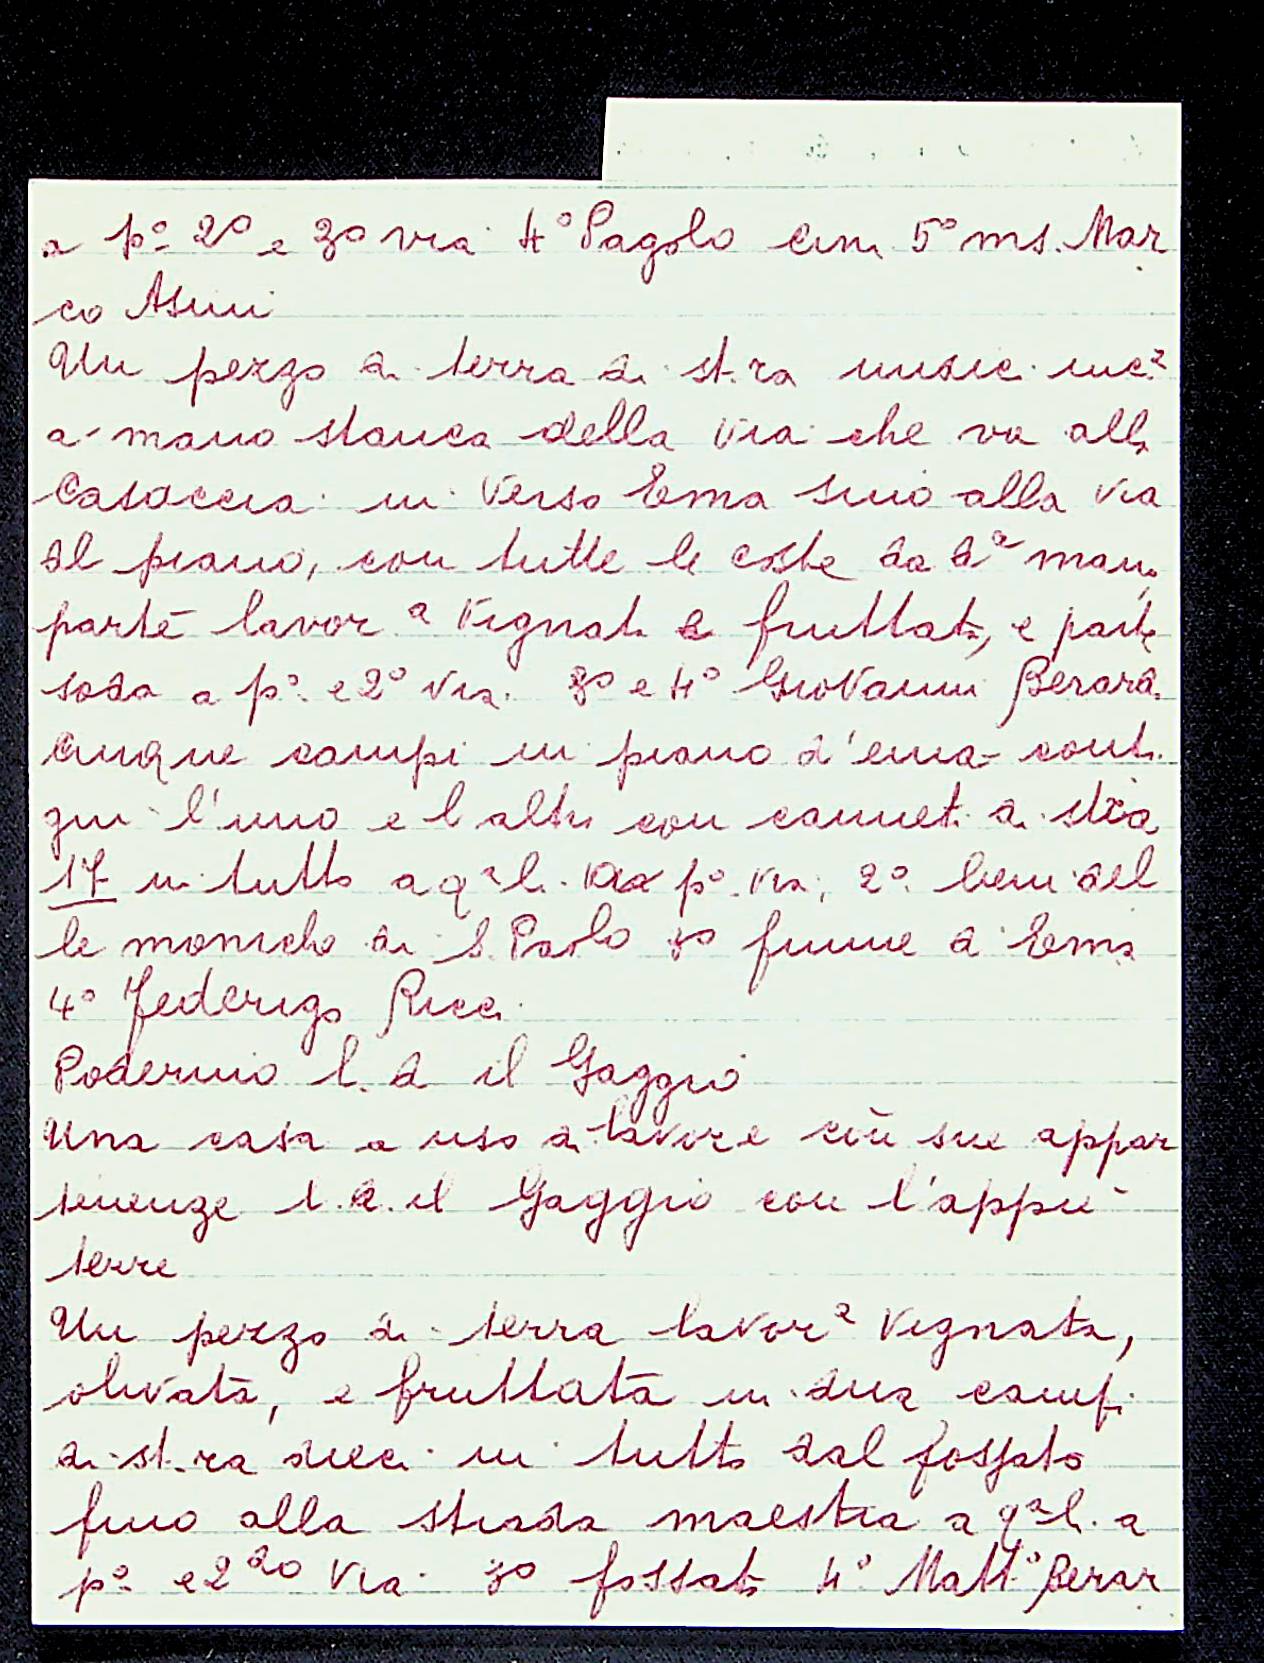 a pº 2º e 3º via 4º Pagolo Cini 5º ms. Mar
co Asini
Un pezzo di terra di st.ra undic. inc.ª
a mano stanca della Via che va alla
Casaccia in Verso Ema sino alla via
del piano, con tutte le coste da dª mano
parte lavorª Vignata e fruttata, e parte
soda a pº e 2º Via 3º e 4º Giovanni Berardi
Cinque campi in piano d'ema conti
gui l'uno e l'altro con canneti di st.ra
17 in tutto a qª li. pº Via, 2º beni del
le moniche di S. Paolo 3º fiume d'Ema
4º Federigo Ricci
Poderino l. d. il Gaggio
Una casa a uso di lavore con sue appar
tenenze l. d. il Gaggio con l'appie
terre
Un pezzo di terra lavorª Vignata,
olivata, e fruttata in dua campi
di st.ra dieci in tutto dal fossato
fino alla strada maestra a qª li. a
pº e 2do Via 3º fossato 4º Mattº Berar